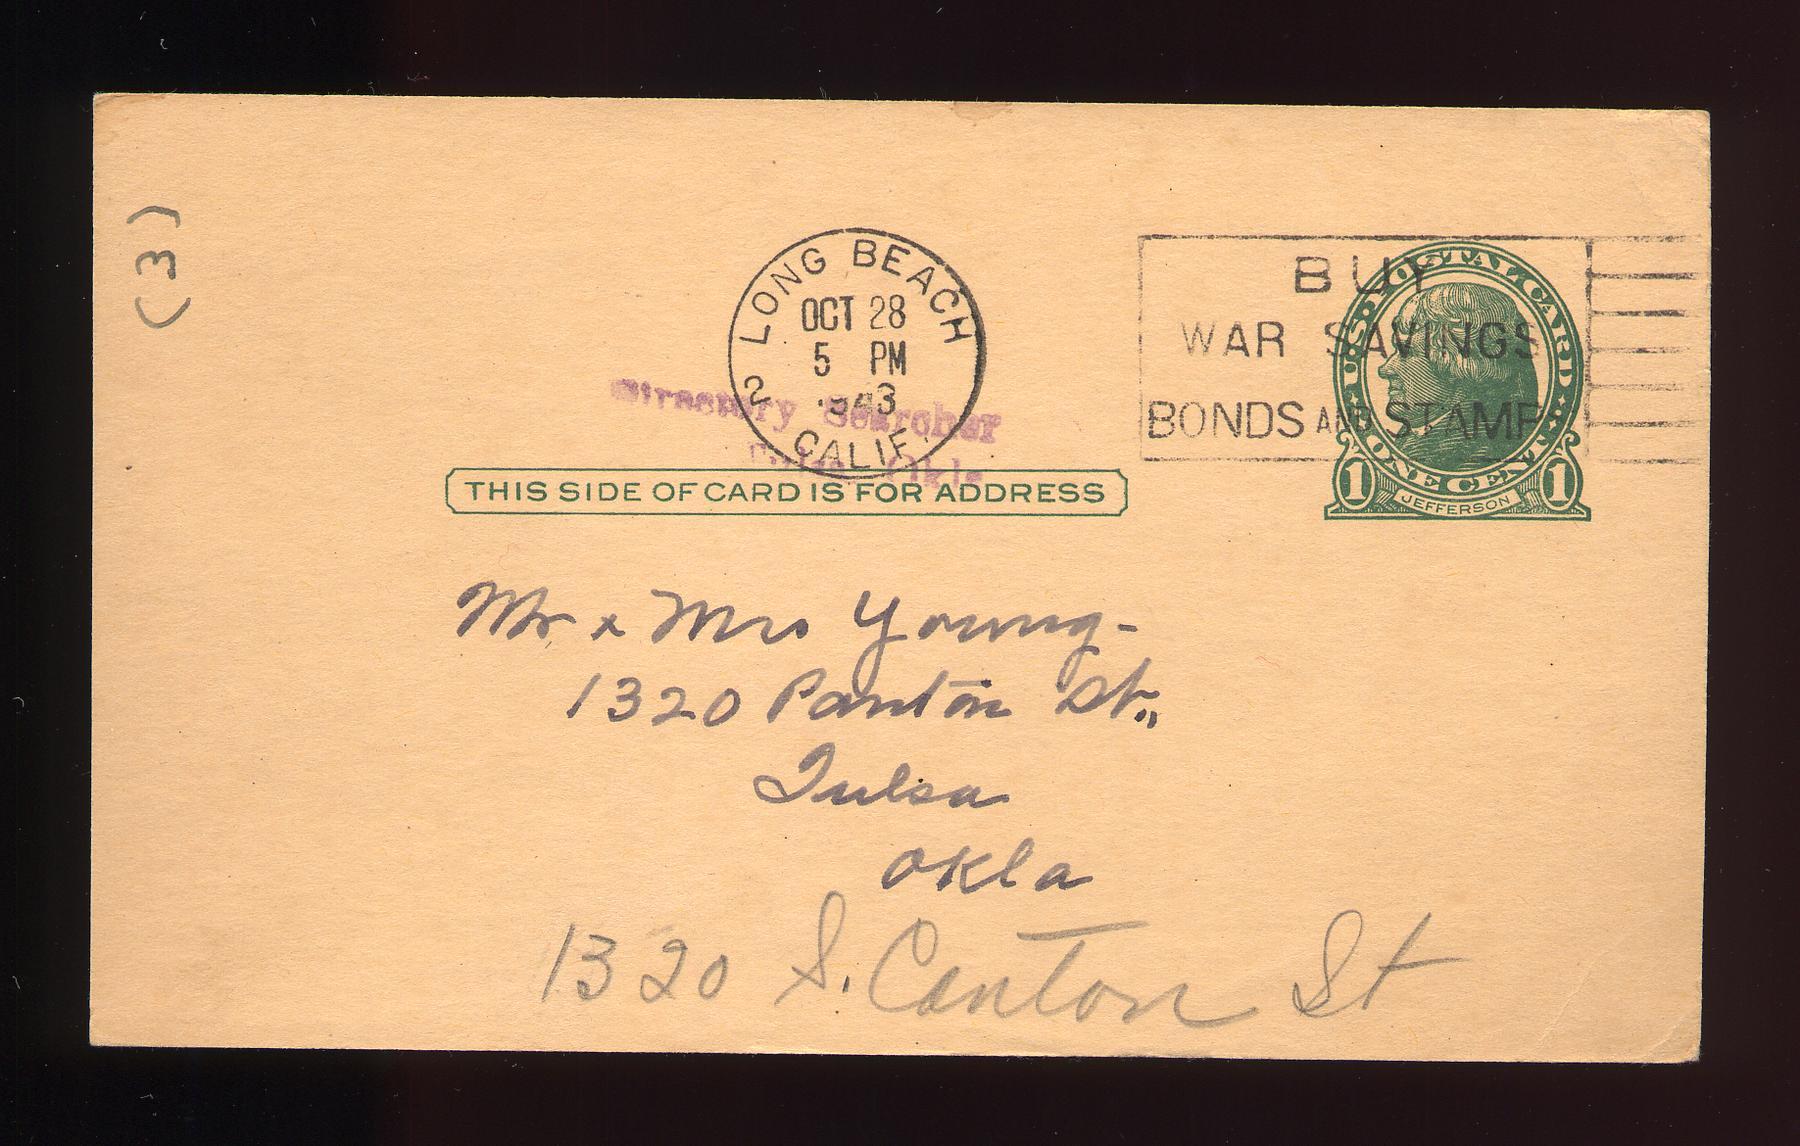 (3)
LONG BEACH
OCT 28
5 PM
1943
2 CALIF.
BUY
WAR SAVINGS
BONDS AND STAMPS
U.S. POSTAL CARD
ONE CENT
1 JEFFERSON 1
Directory Searcher
Tulsa Okla
THIS SIDE OF CARD IS FOR ADDRESS
Mr & Mrs Young-
1320 Panton St.,
Tulsa
Okla
1320 S. Canton St